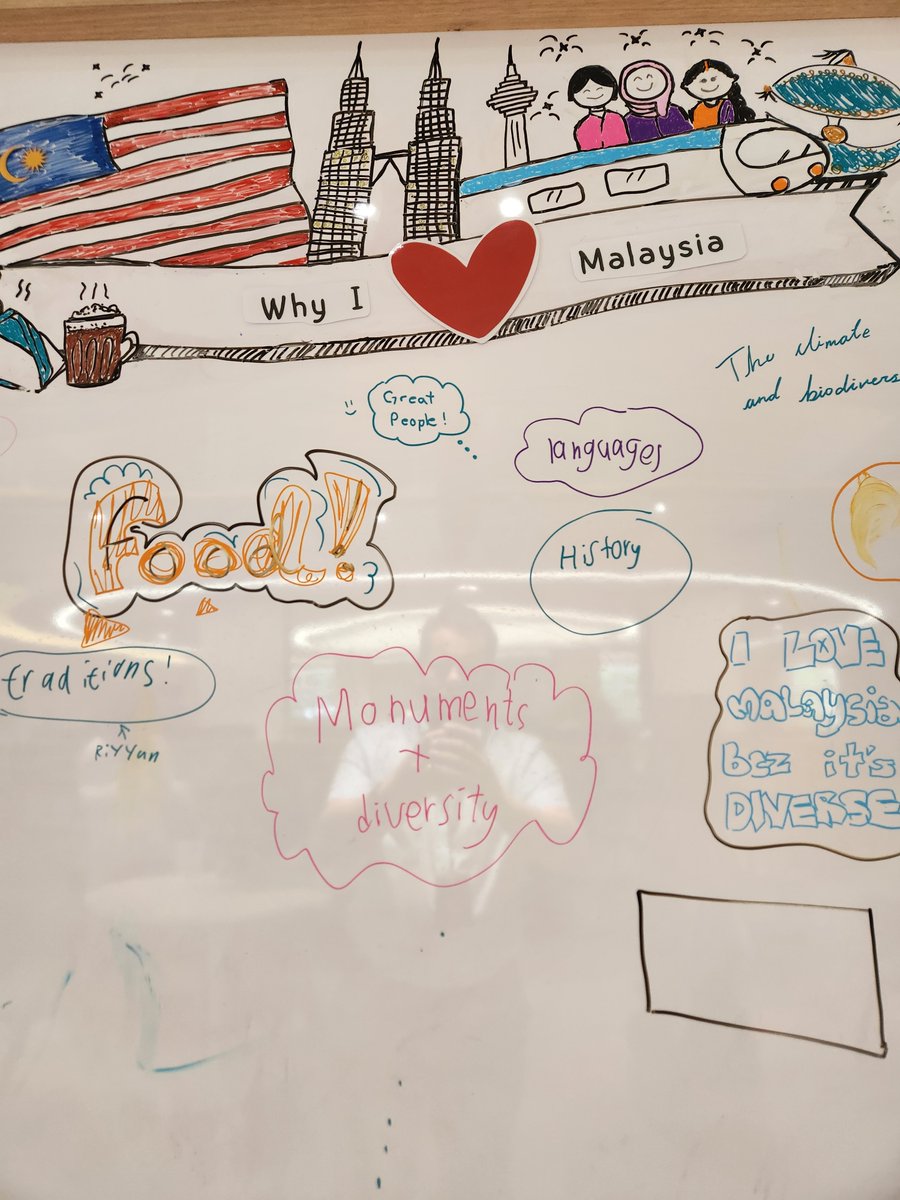 Why I
Malaysia
The climate
and biodivers
Great
People!
languages
Food!
History
traditions!
RiYYan
Monuments
+
diversity
I LOVE
MALAYSIA
bcz it's
DIVERSE